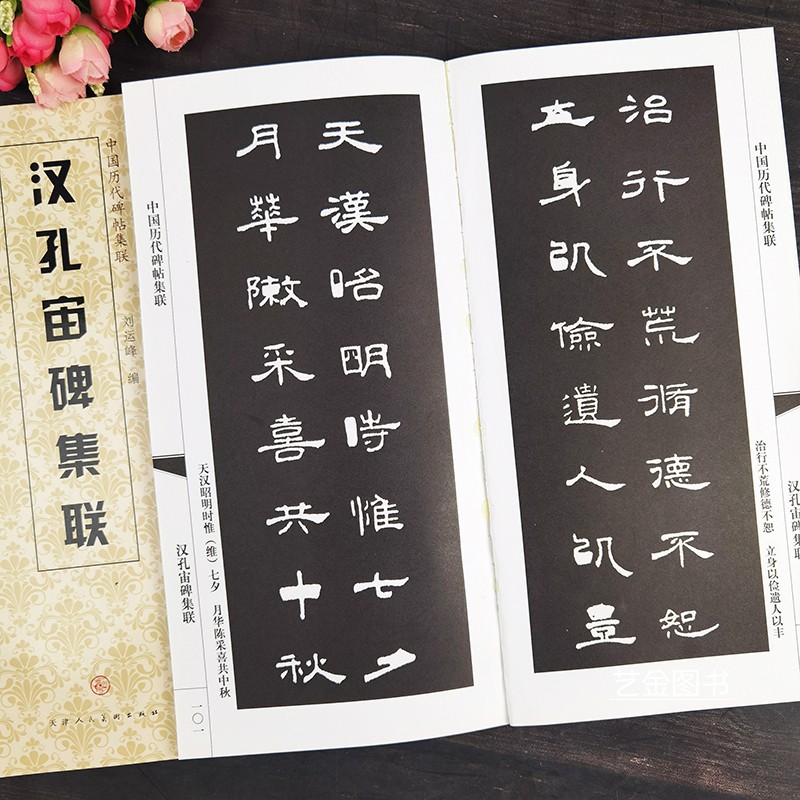 中国历代碑帖集联
汉孔宙碑集联
刘运峰 编
天津人民美术出版社
中国历代碑帖集联
天漢昭明時惟七夕
月華敶采喜共中秋
天汉昭明时惟（维）七夕 月华陈采喜共中秋
汉孔宙碑集联
一〇一
治行不荒脩德不恕
立身㠯儉遺人㠯豊
治行不荒修德不恕 立身以俭遗人以丰
中国历代碑帖集联
汉孔宙碑集联
艺金图书